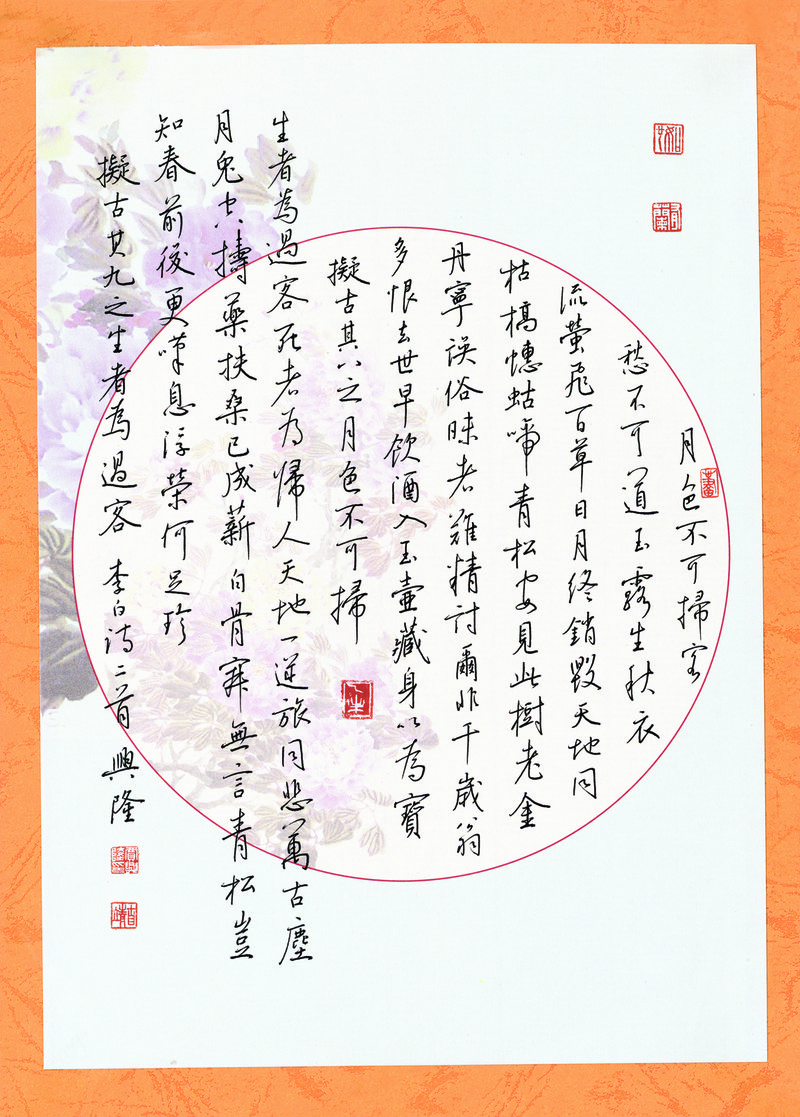 月色不可掃客
愁不可道玉露生秋衣
流螢飛百草日月終銷毀天地同
枯槁蟪蛄啼青松安見此樹老金
丹寧誤俗昧者難精討爾非千歲翁
多恨去世早飲酒入玉壺藏身以為寶
擬古其八之月色不可掃
生者為過客死者為歸人天地一逆旅同悲萬古塵
月兔空擣藥扶桑已成薪白骨寂無言青松豈
知春前後更嘆息浮榮何足珍
擬古其九之生者為過客 李白詩二首 興隆